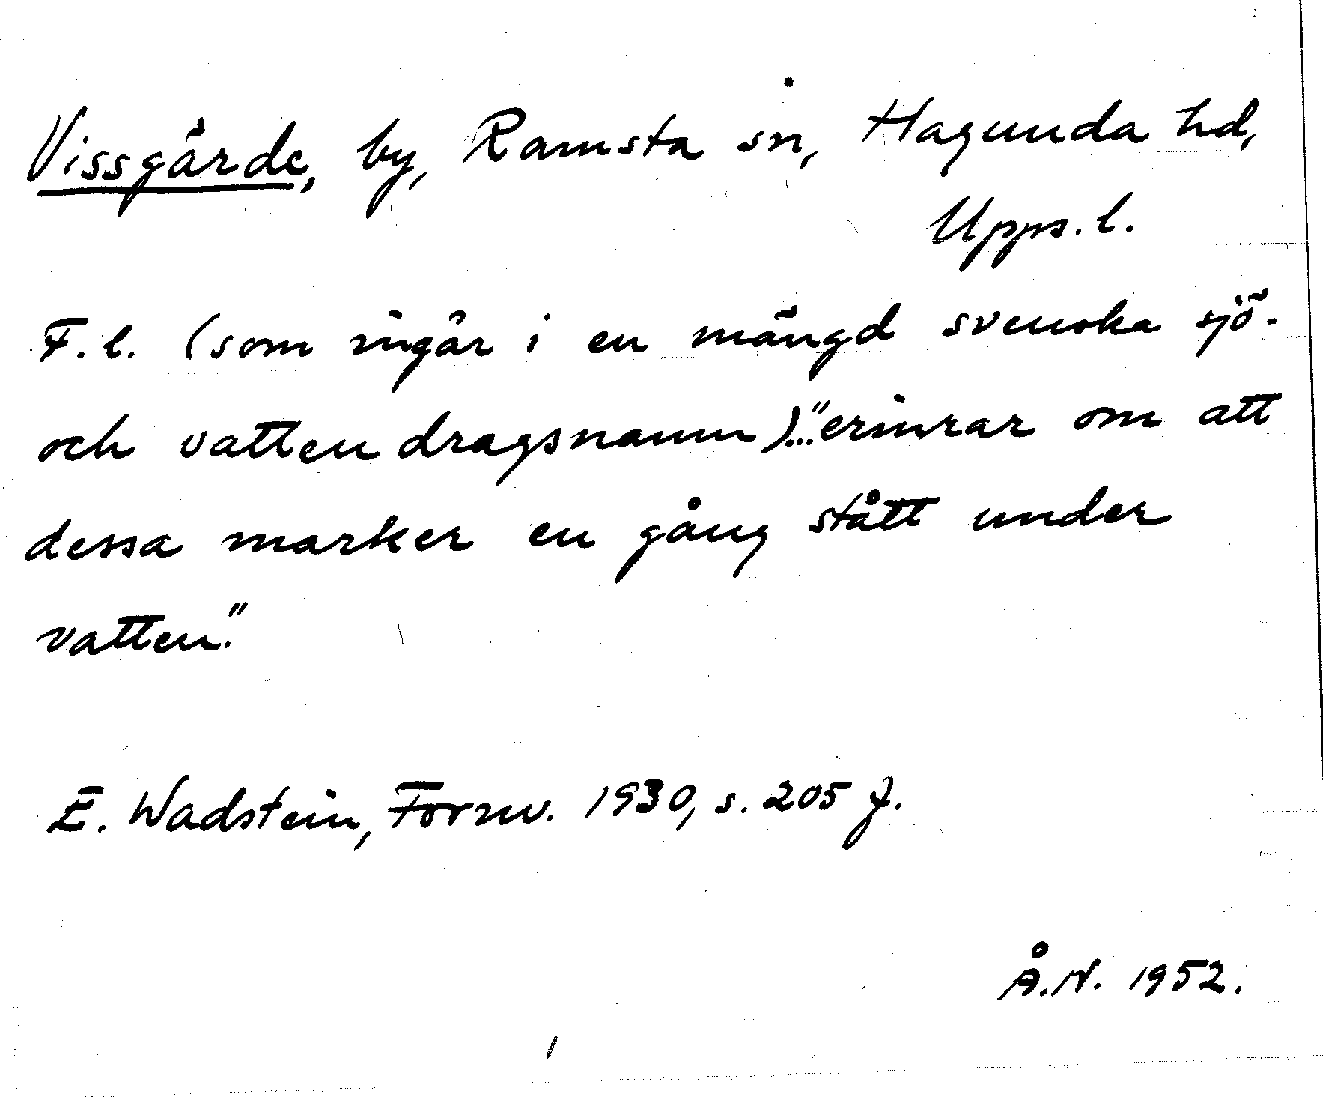 Vissgärde, by, Ramsta sn, Hagunda hd,
Upps. l.
F. l. (som ingår i en mängd svenska sjö-
och vattendragsnamn)..."erinrar om att
dessa marker en gång stått under
vatten."
E. Wadstein, Fornv. 1930, s. 205 f.
Å.N. 1952.